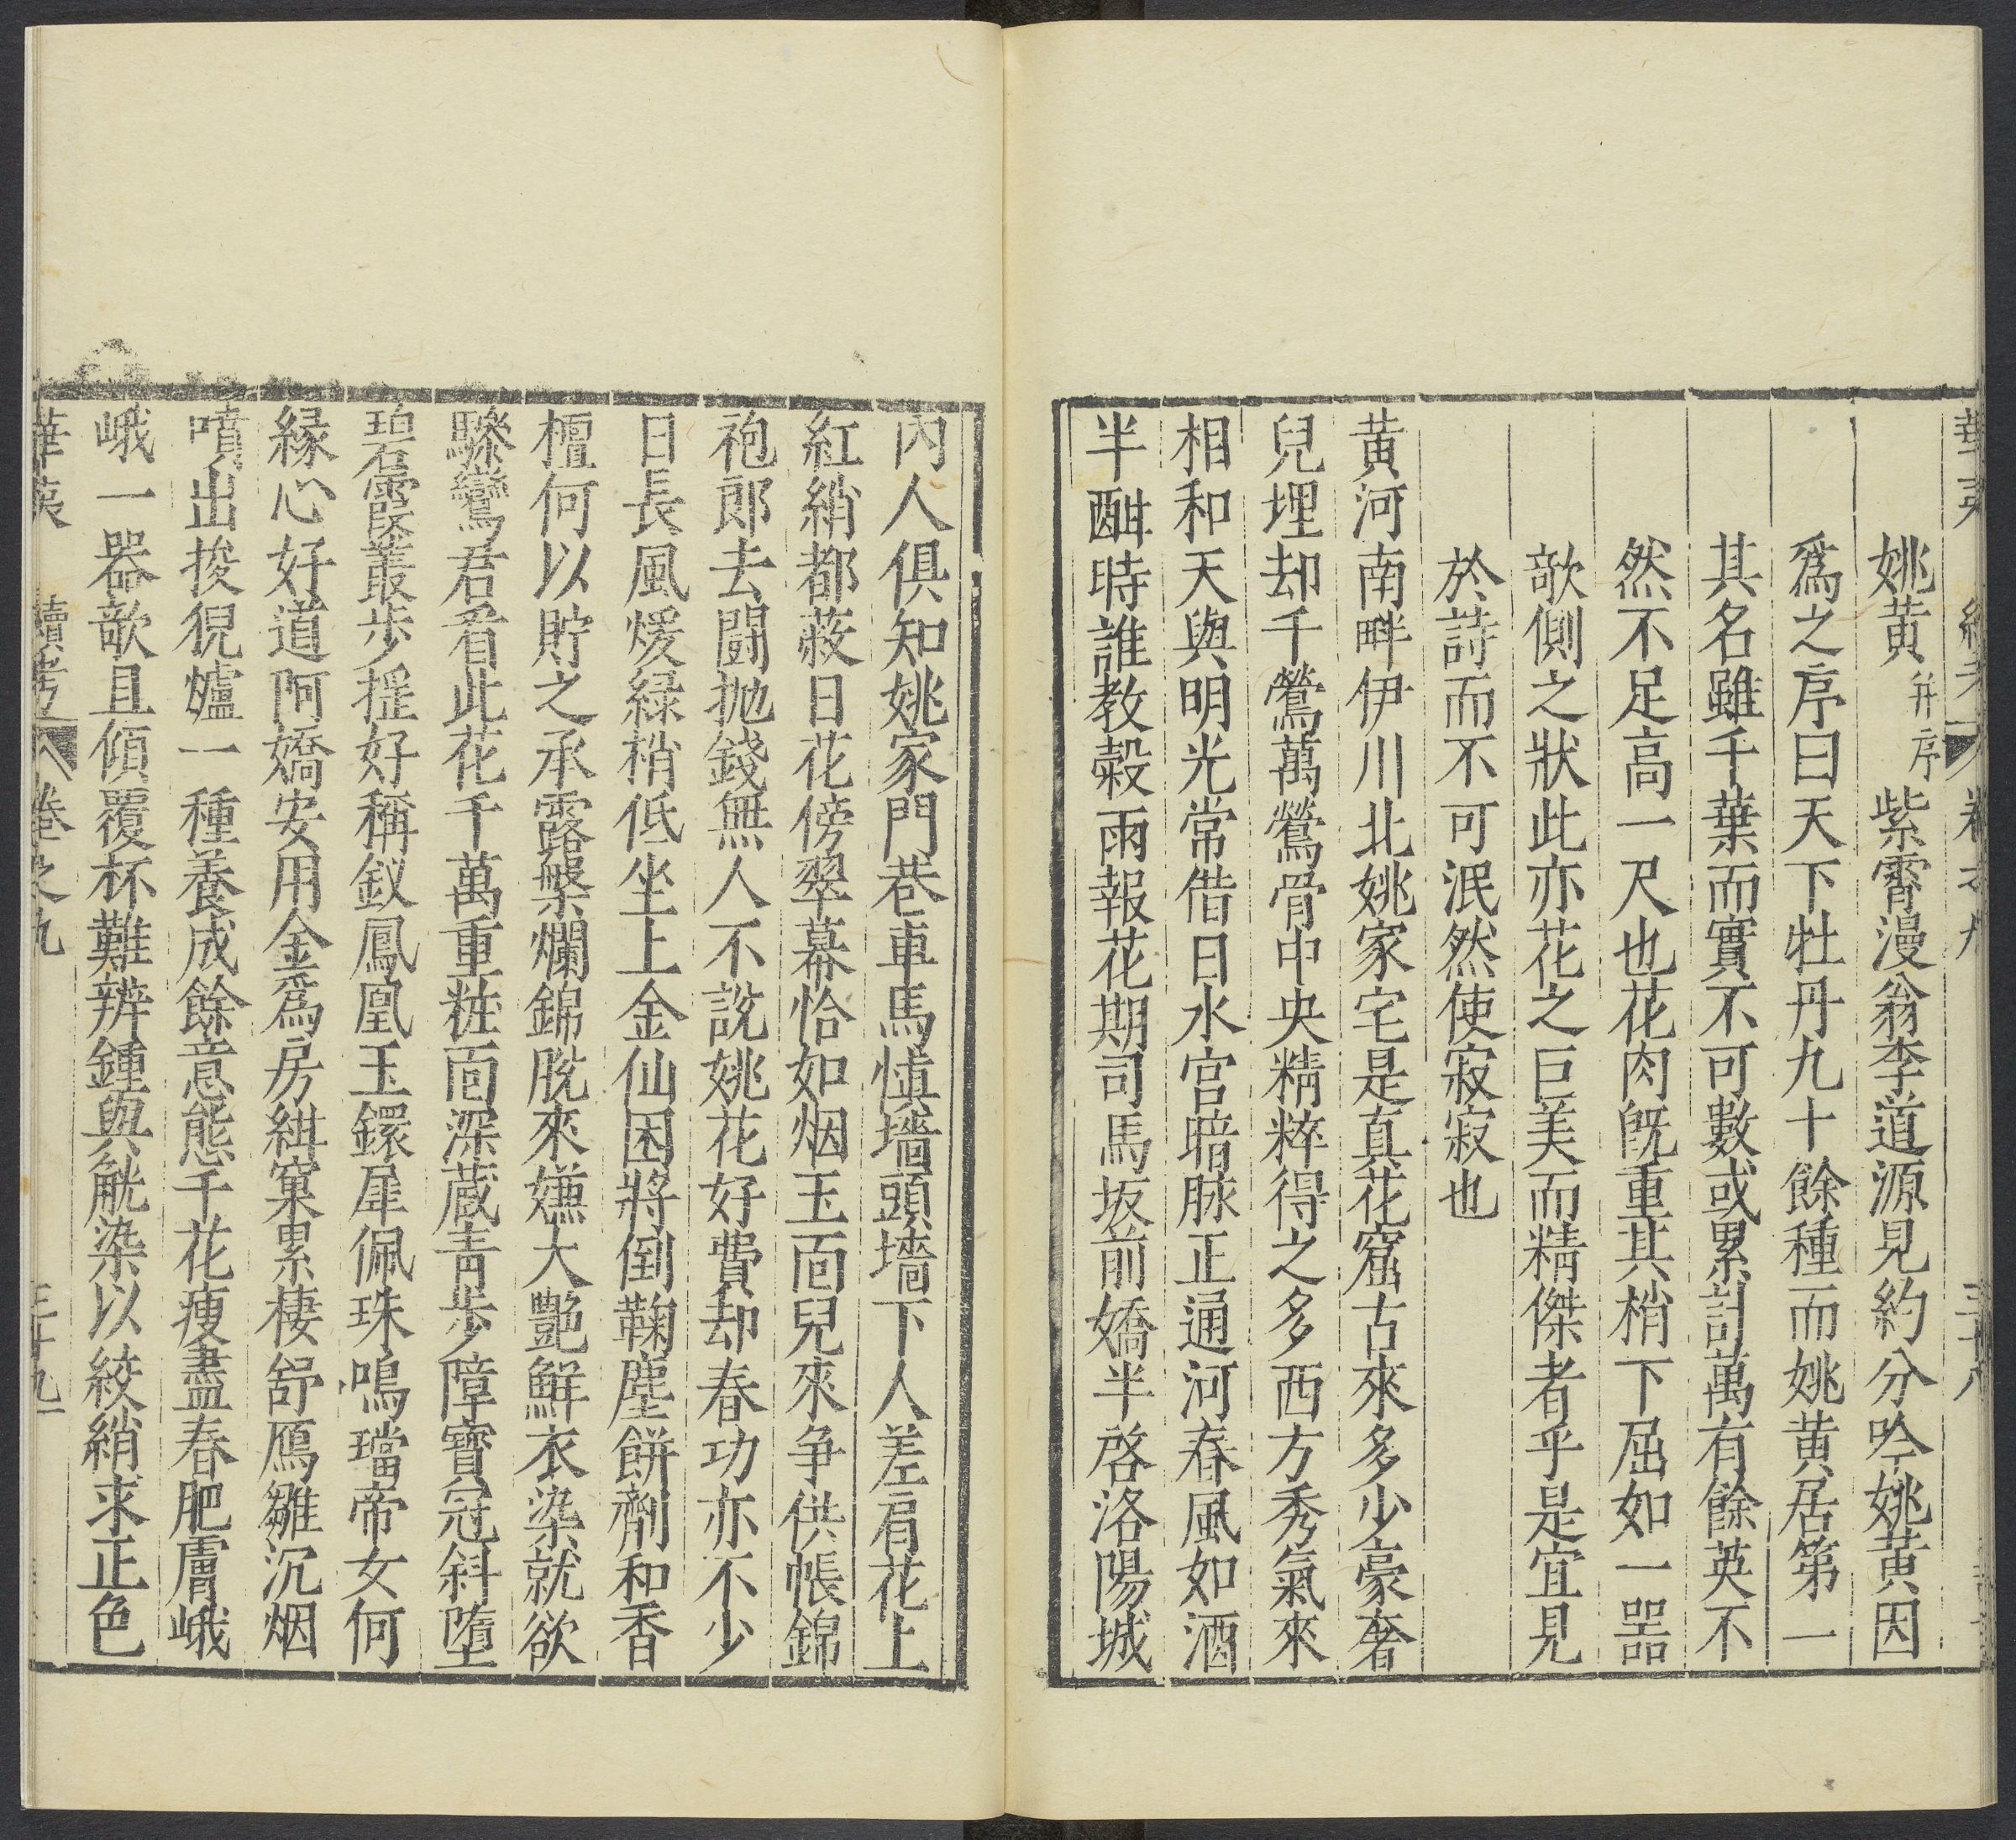 姚黄 并序 紫霄漫翁李道源見約分吟姚黄因
爲之序曰天下牡丹九十餘種而姚黄居第一
其名雖千葉而實不可數或累計萬有餘英不
然不足高一尺也花肉旣重其梢下屈如一噐
欹側之狀此亦花之巨美而精傑者乎是宜見
於詩而不可泯然使寂寂也
黄河南畔伊川北姚家宅是真花窟古來多少豪奢
兒埋却千鶯萬鶯骨中央精粹得之多西方秀氣來
相和天與明光常借日水宫暗脉正通河春風如酒
半酣時誰教穀雨報花期司馬坂前嬌半啓洛陽城
内人俱知姚家門巷車馬慎墻頭墻下人差肩花上
紅綃都蔽日花傍翠幕恰如烟玉面兒來争供帳錦
袍郎去鬬抛錢無人不説姚花好費却春功亦不少
日長風煖緑梢低坐上金仙困將倒鞠塵餅劑和香
檀何以貯之承露槃爛錦脱來嫌大艶鮮衣染就欲
驂鸞君看此花千萬重粧面深蔵青步障寶冠斜墮
碧霞叢步摇好稱釵鳳凰玉鐶犀佩珠鳴璫帝女何
縁心好道阿嬌安用金爲房紺窠累棲舒鴈雛沉烟
噴出狻猊爐一種養成餘意態千花痩盡春肥膚峨
峨一器欹且傾覆杯難辨鍾與觥染以絞綃求正色
華夷 續考 卷之九 三十九